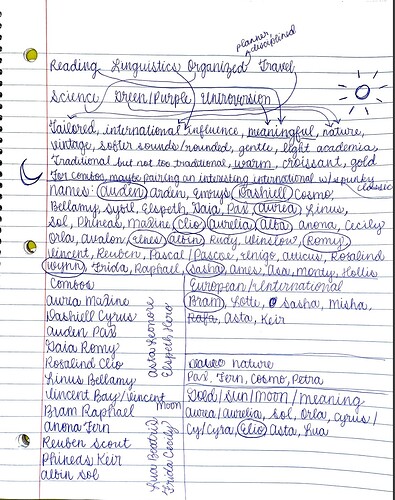 planner, disciplined
Reading Linguistics Organized Travel
Science Green/Purple Introversion
Tailored, international influence, meaningful, nature,
vintage, softer sounds/rounded, gentle, light academia,
Traditional but not too traditional, warm, croissant, gold
For combos, maybe pairing an interesting international w/ spunky classic
Names: Auden, Arden, Emrys, Dashiell, Cosmo,
Bellamy, Sybil, Elspeth, Gaia, Pax, Aurea, Linus,
Sol, Phineas, Maxine, Clio, Aurelia, Alba, Anona, Cecily
Orla, Avalon, Eines, Albin, Rudy, Winslow, Romy,
Vincent, Reuben, Pascal/Pascoe, Atticus, Rosalind
Wynn, Frida, Raphael, Sasha, Ames, Asa, Monty, Hollis
Combos
Aurea Maxine
Dashiell Cyrus
Auden Pax
Gaia Romy
Rosalind Clio
Linus Bellamy
Vincent Bay/Vincent Moon
Bram Raphael
Anona Fern
Reuben Scout
Phineas Keir
Albin Sol
Asta Leonore
Elspeth Hero
Lua Beatrix
Frida Cecily
European/International
Bram, Lotte, Sasha, Misha,
Rafa, Asta, Keir
nature
Pax, Fern, Cosmo, Petra
Gold/Sun/Moon/meaning
Aurea/Aurelia, Sol, Orla, Cyrus/
Cy/Cyra, Elio, Asta, Lua